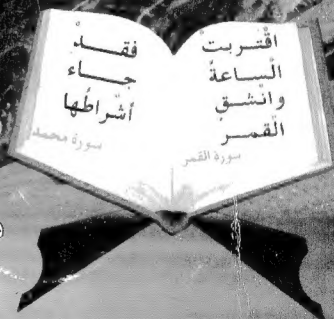 اقْتربتْ
الْساعةُ
وانْشقِ
القْمـر
سورة القمر
فقـدْ
جـاء
أشْراطُها
سورة محمد